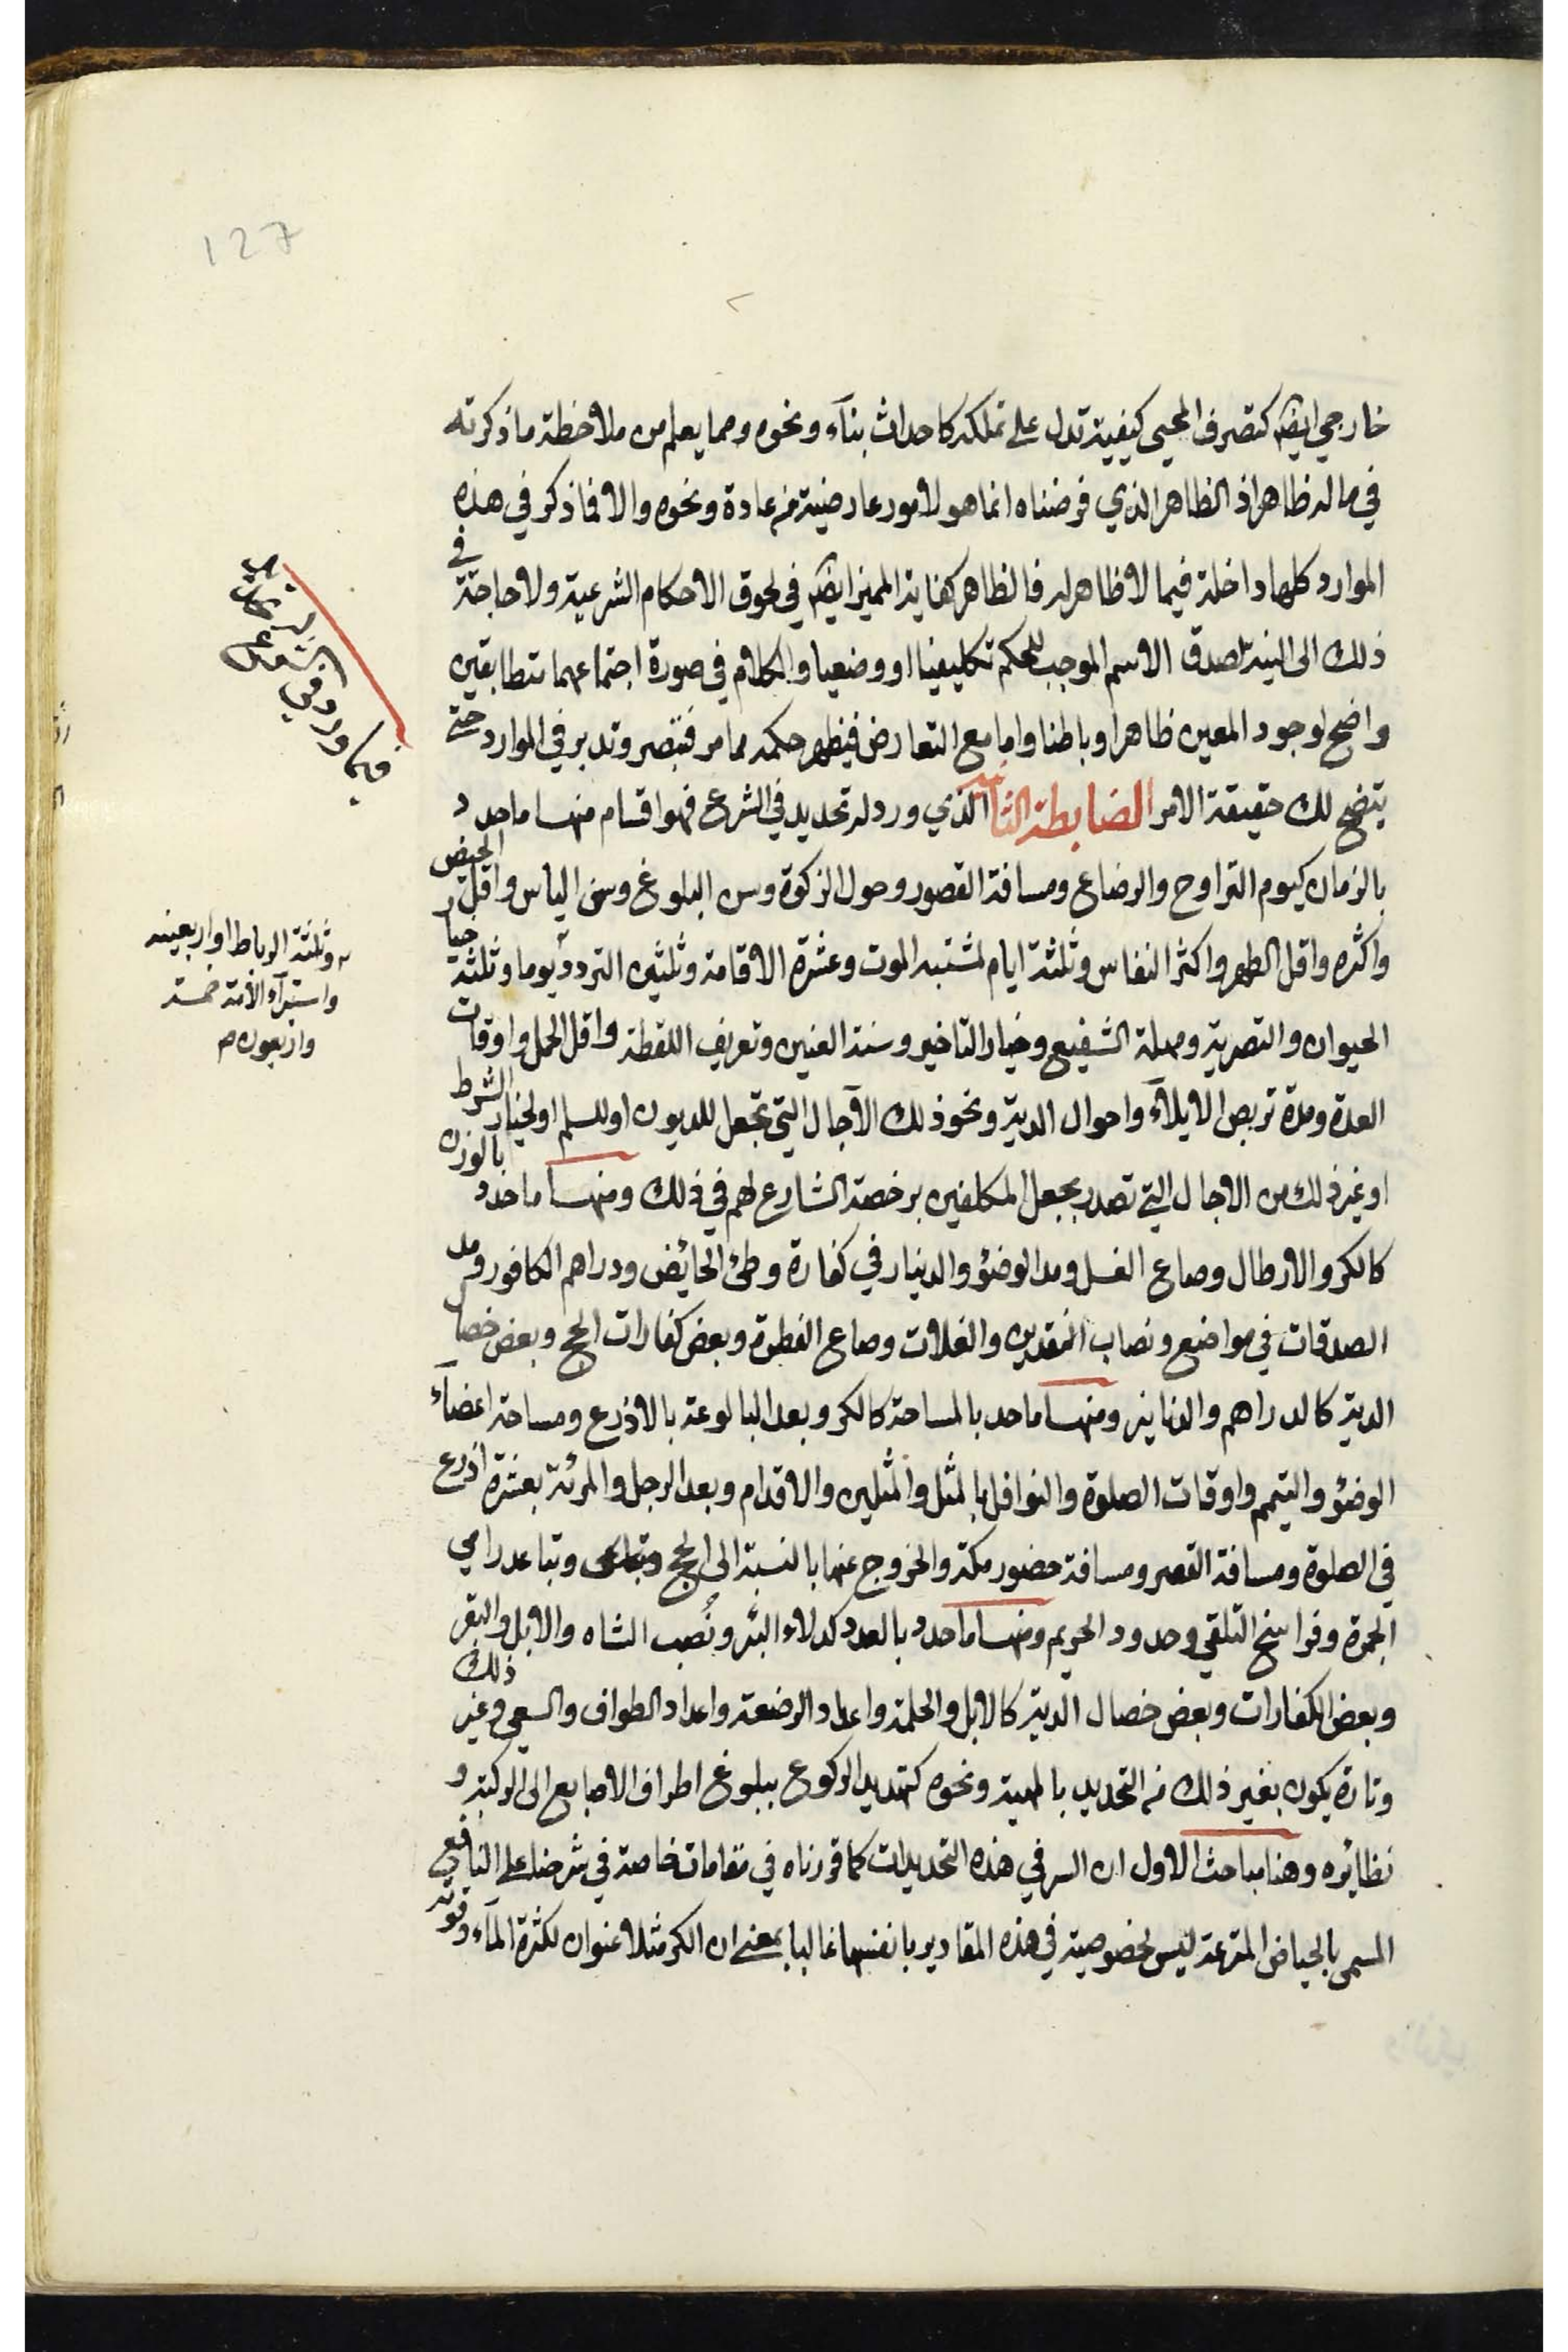 127
خارجي ايضا كتصرف المحيي كيفية تدل على تملكه كاحداث بناء ونحوه ومما يعلم من ملاحظة ما ذكرته
في ماله ظاهر اذ الظاهر الذي فرضناه انما هو لامور عارضية من عادة ونحوه والا فما ذكر في هذه
الموارد كلها داخلة فيما لا ظاهر له فالظاهر كفاية المميز ايضا في لحوق الاحكام الشرعية ولا حاجة في
ذلك الى النية لصدق الاسم الموجب للحكم تكليفيا او وضعيا والكلام في صورة اجتماعهما متطابقين
واضح لوجود المعين ظاهرا وباطنا واما مع التعارض فيظهر حكمه مما مر فتبصر وتدبر في الموارد حتى
يتضح لك حقيقة الامر الضابطة الثانية الذي ورد له تحديد في الشرع فهو اقسام منها ما حدد
بالزمان كيوم التراوح والرضاع ومسافة القصور وحول الزكوة وسن البلوغ وسن الياس واقل الحيض
واكثره واقل الطهر واكثر النفاس وثلثة ايام لمشتبه الموت وعشرة الاقامة وثلثين التردد يوما وثلثة خيار
الحيوان والتصرية ومهلة الشفيع وخيار التاخير وسنة العنين وتعريف اللقطة واقل الحمل واوقات
العدة ومدة تربص الايلاء واحوال الدية ونحو ذلك الآجال التي تجعل للديون او للسلم او لخيار الشرط
او غير ذلك من الاجال التي تصدر بجعل المكلفين برخصة الشارع لهم في ذلك ومنها ما حدد بالوزن
كالكر والارطال وصاع الغسل ومد الوضؤ والدينار في كفارة وطئ الحائض ودراهم الكافور ومد
الصدقات في مواضع ونصاب النقدين والغلات وصاع الفطرة وبعض كفارات الحج وبعض خصال
الدية كالدراهم والدنانير ومنها ما حد بالمساحة كالكر وبعد البالوعة بالاذرع ومساحة اعضاء
الوضؤ والتيمم واوقات الصلوة والنوافل بالمثل والمثلين والاقدام وبعد الرجل والمرئة بعشرة اذرع
في الصلوة ومسافة القصر ومسافة حضور مكة والخروج عنها بالنسبة الى الحج وتباعد رامي
الجمرة وفراسخ التلقي وحدود الحريم ومنها ما حدد بالعدد كدلاء البئر ونُصب الشاه والابل والبقر
وبعض الكفارات وبعض خصال الدية كالابل والحلة واعداد الرضعة واعداد الطواف والسعي وغير ذلك
وتارة يكون بغير ذلك من التحديد بالهيئة ونحوه كتحديد الركوع ببلوغ اطراف الاصابع الى الركبة و
نظائره وهنا مباحث الاول ان السر في هذه التحديدات كما قررناه في مقامات خاصة في شرحنا على النافع
المسمى بالحياض المترعة ليس لخصوصية في هذه المقادير بانفسها غالبا بمعنى ان الكر مثلا عنوان لكثرة الماء وقوته
فيما ورد في الشرع
وثلثة الرباط او اربعينه
واستبراء الأمة خمسة
واربعون م